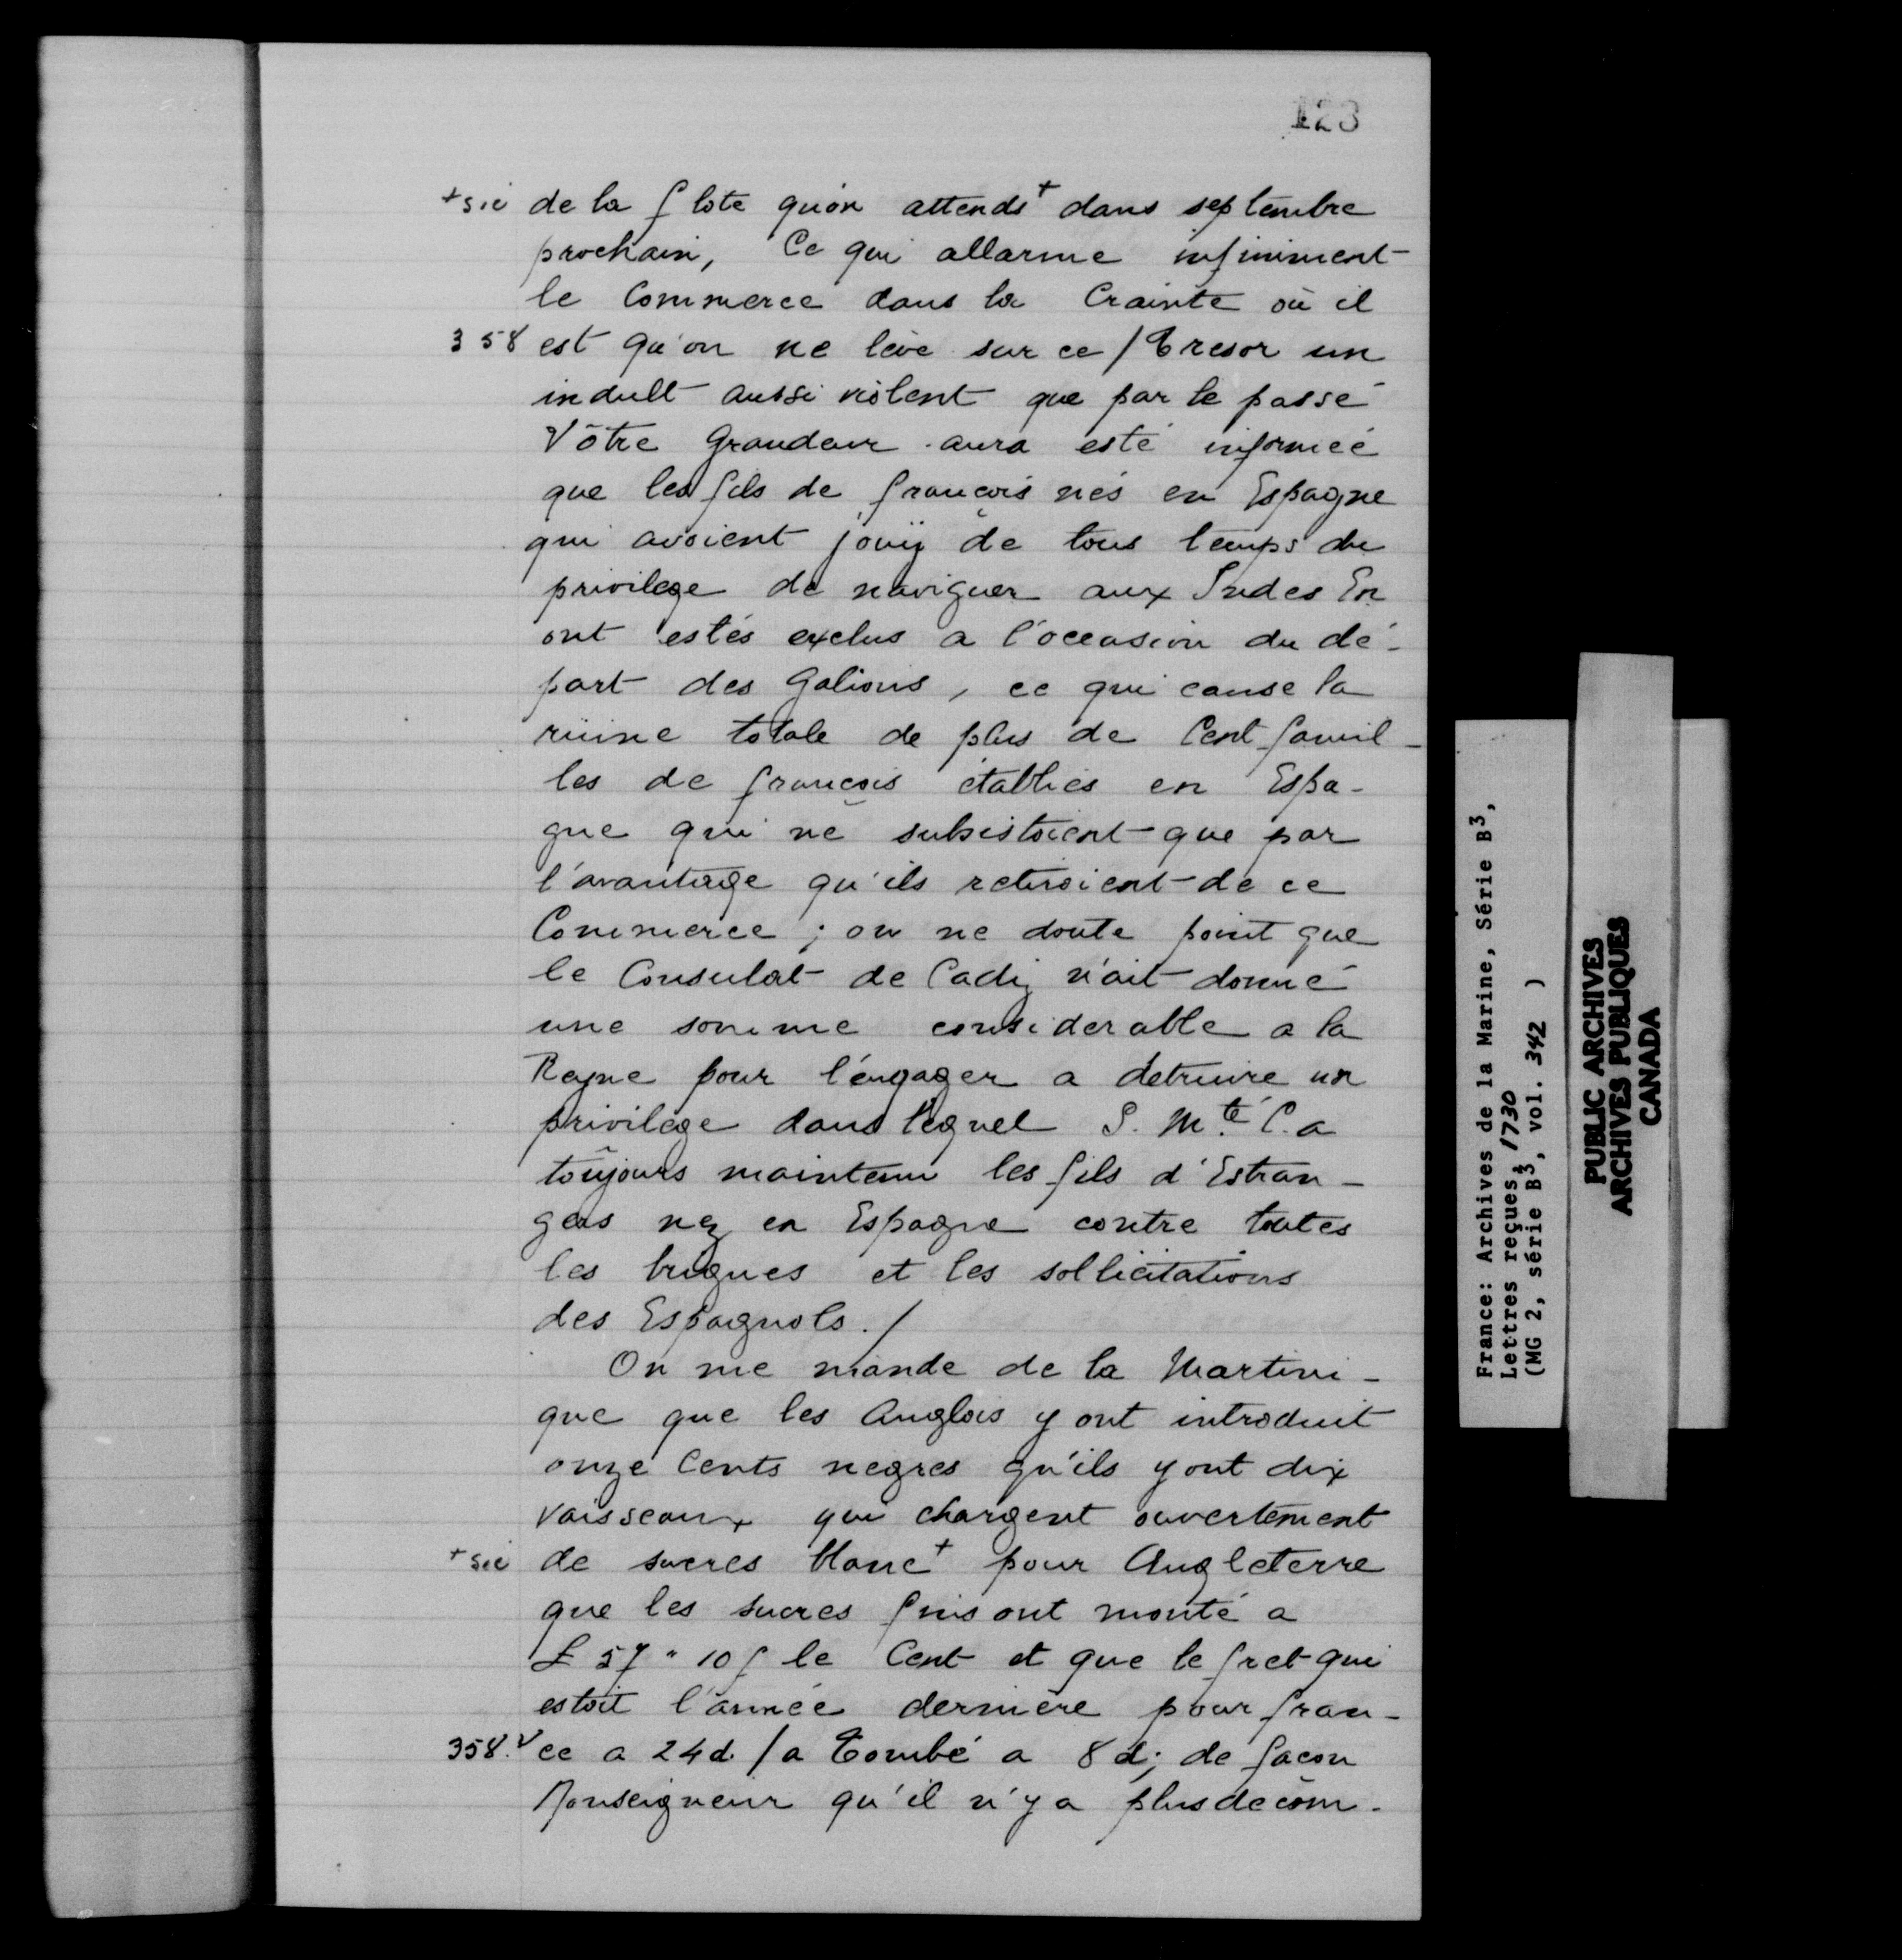 123
+ sic de la flote qu'on attends+ dans septembre
prochain, Ce qui allarme infiniment
le Commerce dans la Crainte où il
358 est qu'on ne lève sur ce / Tresor un
indult aussi violent que par le passé
Vôtre Grandeur aura esté informée
que les fils de françois nés en Espagne
qui avoient jouÿ de tous temps du
privilege de naviguer aux Indes En
ont estés exclus a l'occasion du dé-
part des Galions, ce qui cause la
rüine totale de plus de Cent famil-
les de françois établies en Espa-
gne qui ne subsistoient que par
l'avantage qu'ils retiroient de ce
Commerce; on ne doute point que
le Consulat de Cadiz n'ait donné
une somme considerable a la
Reyne pour l'engager a detruire un
privilège dans lequel S. M.té C. a
toûjours maintenu les fils d'Estran-
gers nez en Espagne contre toutes
les brigues et les sollicitations
des Espagnols./
On me mande de la Martini-
que que les Anglois y ont introduit
onze Cents negres qu'ils y ont dix
vaisseaux qui chargent ouvertement
+ sic de sucres blanc+ pour Angleterre
que les sucres fins ont monté a
£ 57 " 10 f le Cent et que le fret qui
estoit l'année dernière pour fran-
358.v ce a 24 d. / a Tombé a 8 d; de facon
Monseigneur qu'il n'y a plus de com-
France: Archives de la Marine, Série B3,
Lettres reçues, 1730
(MG 2, série B3, vol. 342 )
PUBLIC ARCHIVES
ARCHIVES PUBLIQUES
CANADA